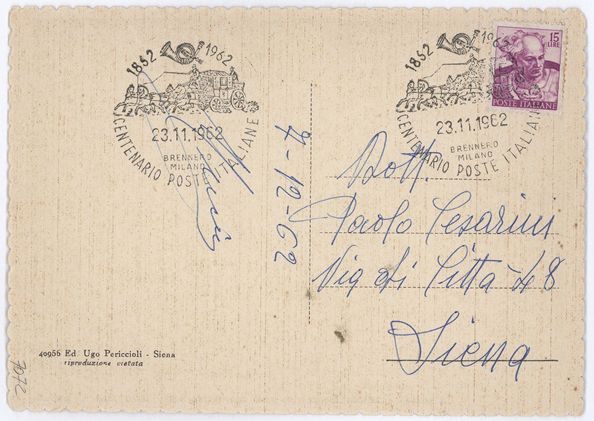 1852 1962
23.11.1962
BRENNERO
MILANO
CENTENARIO POSTE ITALIANE
1852 1962
23.11.1962
BRENNERO
MILANO
CENTENARIO POSTE ITALIANE
15
LIRE
POSTE ITALIANE
7-12-62
Dott.
Paolo Cesarini
Via di Città 48
Siena
40956 Ed. Ugo Periccioli - Siena
riproduzione vietata
7072